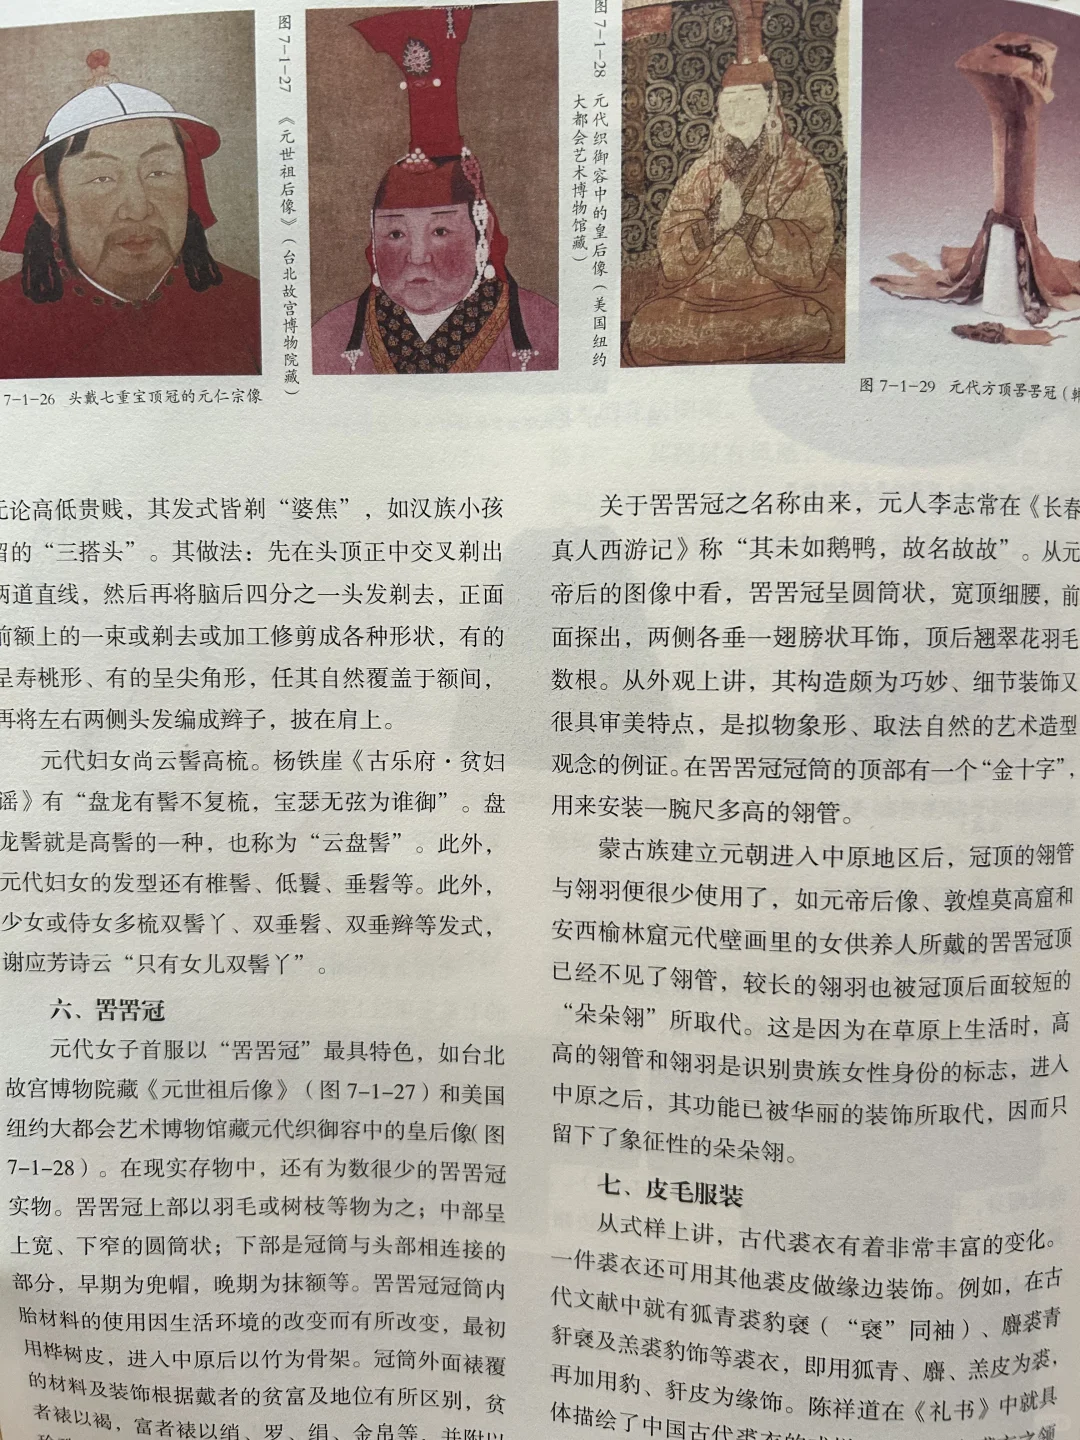 7-1-26 头戴七重宝顶冠的元仁宗像
图7-1-27 《元世祖后像》（台北故宫博物院藏）
图7-1-28 元代织御容中的皇后像（美国纽约
大都会艺术博物馆藏）
图 7-1-29 元代方顶罟罟冠（
无论高低贵贱，其发式皆剃“婆焦”，如汉族小孩
留的“三搭头”。其做法：先在头顶正中交叉剃出
两道直线，然后再将脑后四分之一头发剃去，正面
前额上的一束或剃去或加工修剪成各种形状，有的
呈寿桃形、有的呈尖角形，任其自然覆盖于额间，
再将左右两侧头发编成辫子，披在肩上。
元代妇女尚云髻高梳。杨铁崖《古乐府·贫妇
谣》有“盘龙有髻不复梳，宝瑟无弦为谁御”。盘
龙髻就是高髻的一种，也称为“云盘髻”。此外，
元代妇女的发型还有椎髻、低鬟、垂髫等。此外，
少女或侍女多梳双髻丫、双垂髫、双垂辫等发式，
谢应芳诗云“只有女儿双髻丫”。
六、罟罟冠
元代女子首服以“罟罟冠”最具特色，如台北
故宫博物院藏《元世祖后像》（图7-1-27）和美国
纽约大都会艺术博物馆藏元代织御容中的皇后像（图
7-1-28）。在现实存物中，还有为数很少的罟罟冠
实物。罟罟冠上部以羽毛或树枝等物为之；中部呈
上宽、下窄的圆筒状；下部是冠筒与头部相连接的
部分，早期为兜帽，晚期为抹额等。罟罟冠冠筒内
胎材料的使用因生活环境的改变而有所改变，最初
用桦树皮，进入中原后以竹为骨架。冠筒外面裱覆
的材料及装饰根据戴者的贫富及地位有所区别，贫
者裱以褐，富者裱以绡、罗、绢、金帛等，并附以
关于罟罟冠之名称由来，元人李志常在《长春
真人西游记》称“其末如鹅鸭，故名故故”。从元
帝后的图像中看，罟罟冠呈圆筒状，宽顶细腰，前
面探出，两侧各垂一翅膀状耳饰，顶后翘翠花羽毛
数根。从外观上讲，其构造颇为巧妙、细节装饰又
很具审美特点，是拟物象形、取法自然的艺术造型
观念的例证。在罟罟冠冠筒的顶部有一个“金十字”，
用来安装一腕尺多高的翎管。
蒙古族建立元朝进入中原地区后，冠顶的翎管
与翎羽便很少使用了，如元帝后像、敦煌莫高窟和
安西榆林窟元代壁画里的女供养人所戴的罟罟冠顶
已经不见了翎管，较长的翎羽也被冠顶后面较短的
“朵朵翎”所取代。这是因为在草原上生活时，高
高的翎管和翎羽是识别贵族女性身份的标志，进入
中原之后，其功能已被华丽的装饰所取代，因而只
留下了象征性的朵朵翎。
七、皮毛服装
从式样上讲，古代裘衣有着非常丰富的变化。
一件裘衣还可用其他裘皮做缘边装饰。例如，在古
代文献中就有狐青裘豹褎（“褎”同袖）、麛裘青
豻褎及羔裘豹饰等裘衣，即用狐青、麛、羔皮为裘，
再加用豹、豻皮为缘饰。陈祥道在《礼书》中就具
体描绘了中国古代裘衣的